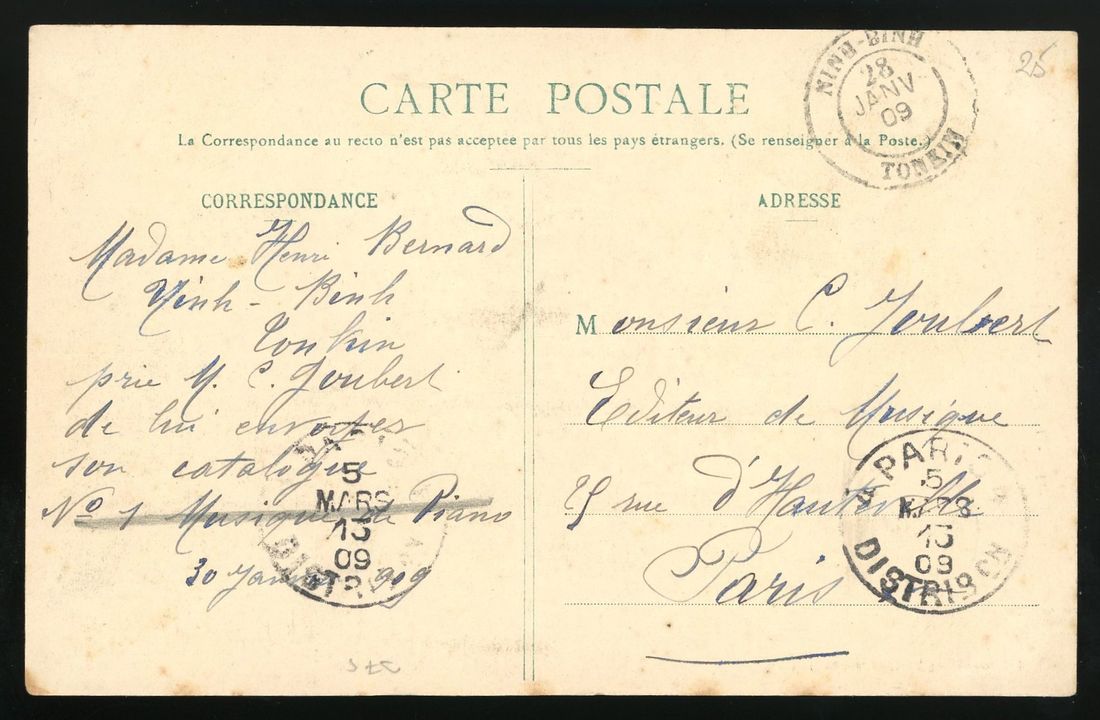 CARTE POSTALE
La Correspondance au recto n'est pas acceptée par tous les pays étrangers. (Se renseigner à la Poste.)
NINH-BINH
28
JANV
09
TONKIN
25
CORRESPONDANCE
Madame Henri Bernard
Ninh-Binh
Tonkin
prie M. C. Joubert
de lui envoyer
son catalogue
No 1 Musique de Piano
30 Janvier 1909
5
MARS
15
09
DISTRI
ADRESSE
Monsieur C. Joubert
Editeur de Musique
25 rue d'Hauteville
Paris
PARIS
5
MARS
15
09
DISTRIBON